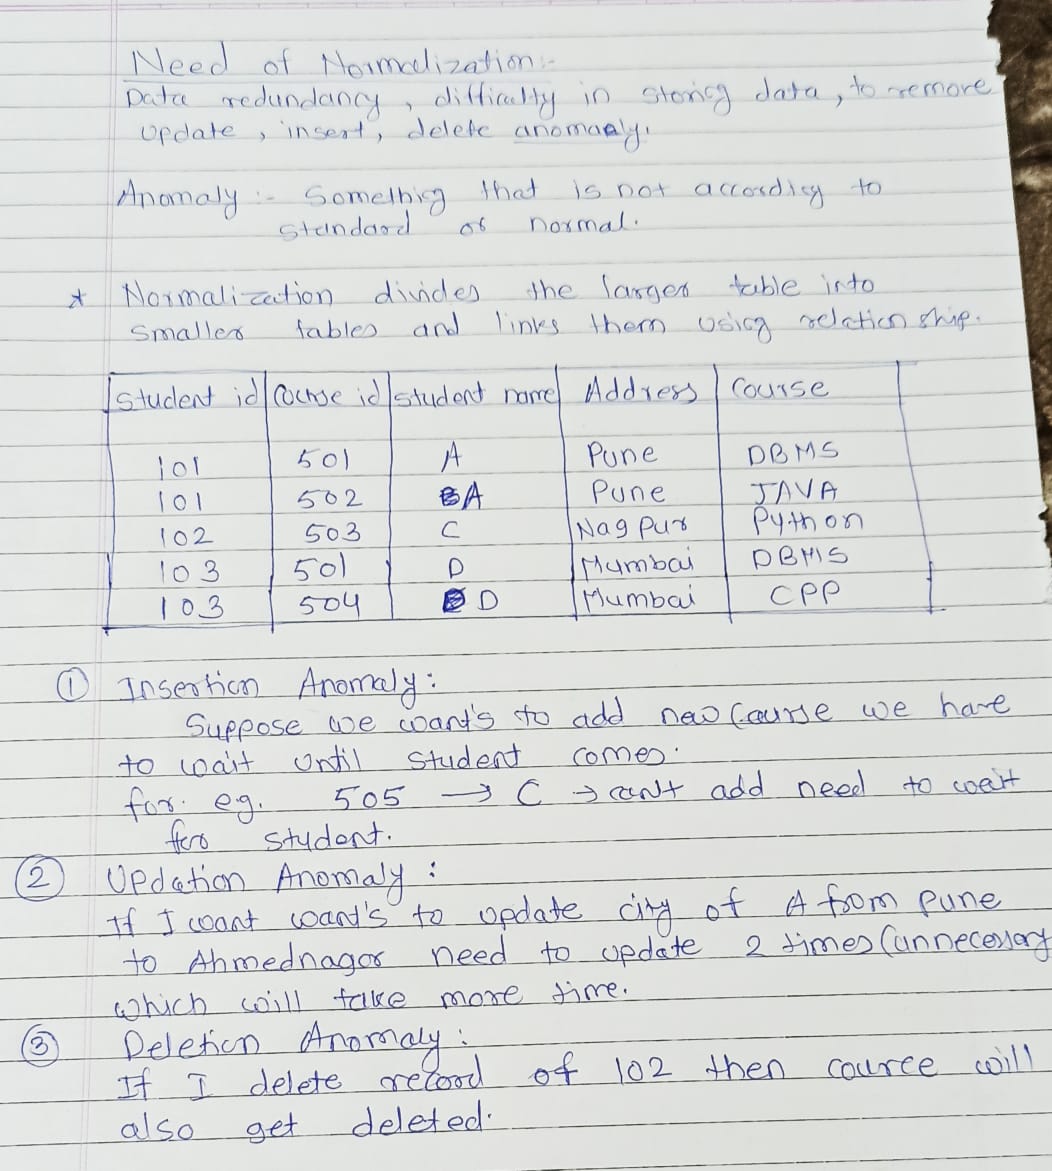 Need of Normalization:-
Data redundancy, difficulty in storing data, to remove
update, insert, delete anomaly.
Anomaly :- Something that is not according to
standard or normal.
* Normalization divides the larger table into
smaller tables and links them using relation ship.
Student id Course id student name Address Course
101 501 A Pune DBMS
101 502 A Pune JAVA
102 503 C Nagpur Python
103 501 D Mumbai DBMS
103 504 D Mumbai CPP
① Insertion Anomaly:
Suppose we want's to add new Course we have
to wait until student comes.
for. eg. 505 → C → can't add need to wait
for student.
② Updation Anomaly:
If I want want's to update city of A from Pune
to Ahmednagar need to update 2 times (unnecessary
which will take more time.
③ Deletion Anomaly:
If I delete record of 102 then cource will
also get deleted.